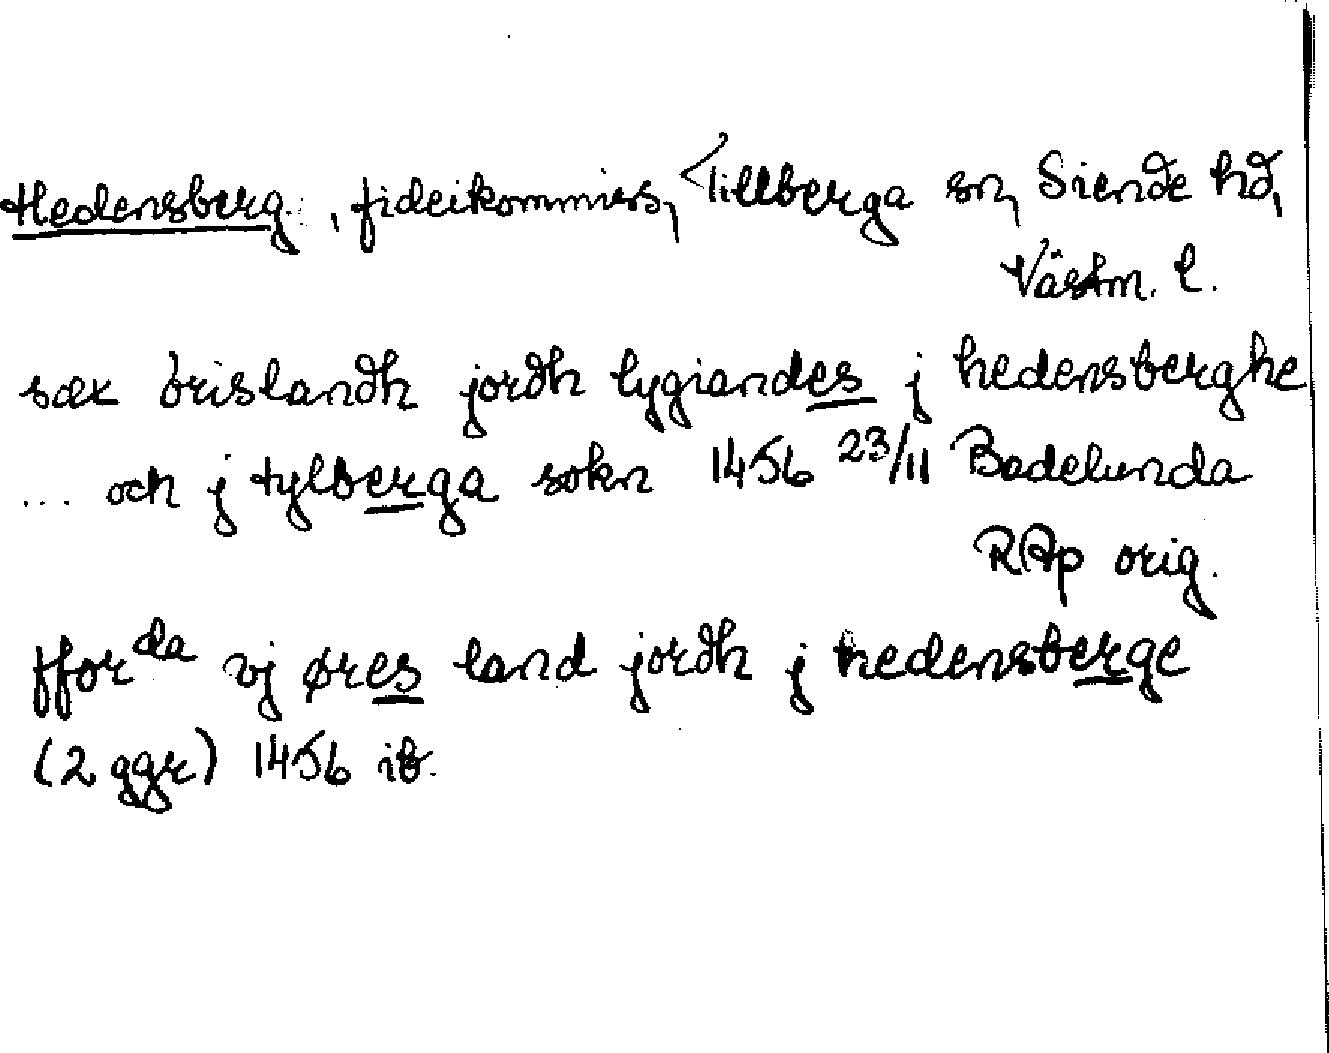 Hedensberg, fideikommiss, Tillberga sn, Siende hd,
Västm. l.
sæx örislandh jordh lygiandes j hedensberghe
... och j tylberga sokn 1456 23/11 Badelunda
RAp orig.
fforda vj øres land jordh j hedensberge
(2 ggr) 1456 ib.